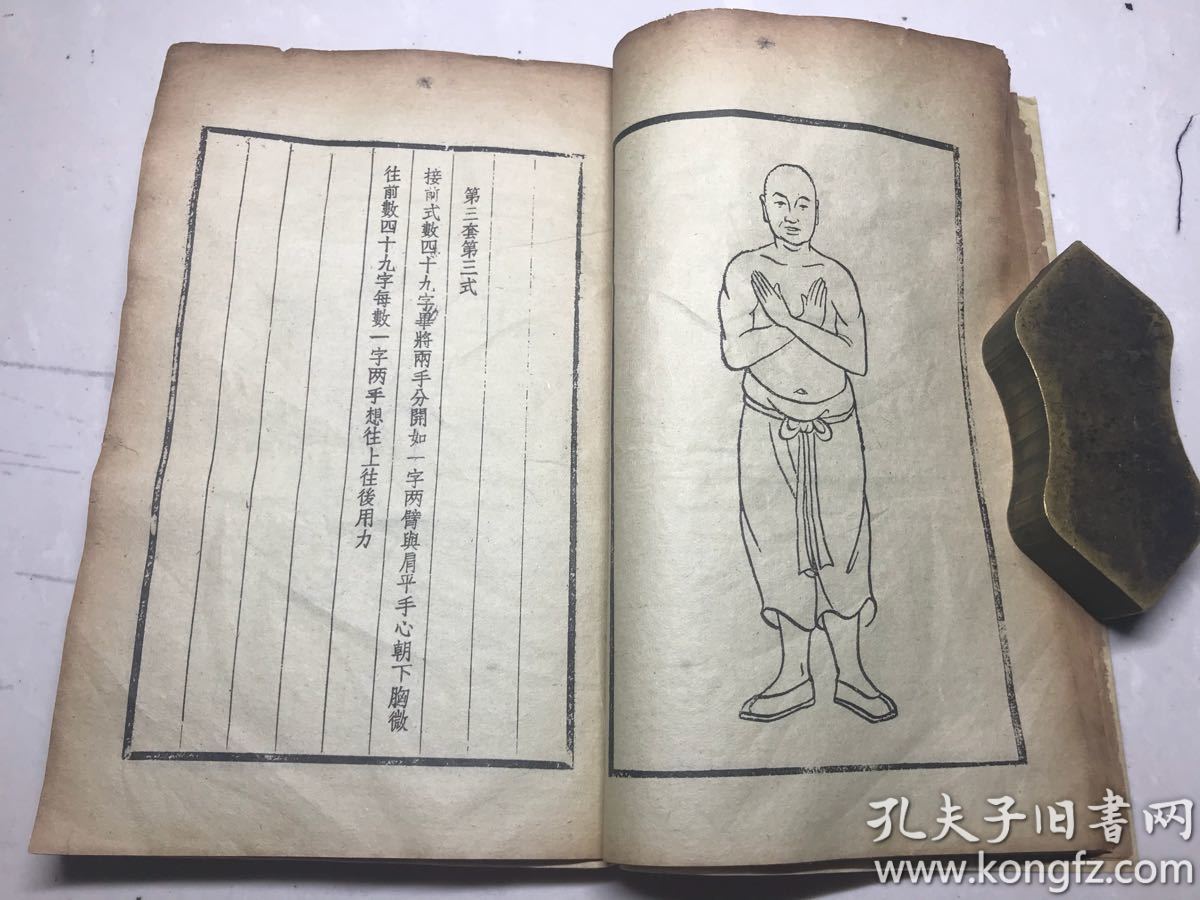 第三套第三式
接前式數四十九字畢將兩手分開如一字两臂與肩平手心朝下胸微
往前數四十九字每數一字两手想往上往後用力
孔夫子旧書网
www.kongfz.com